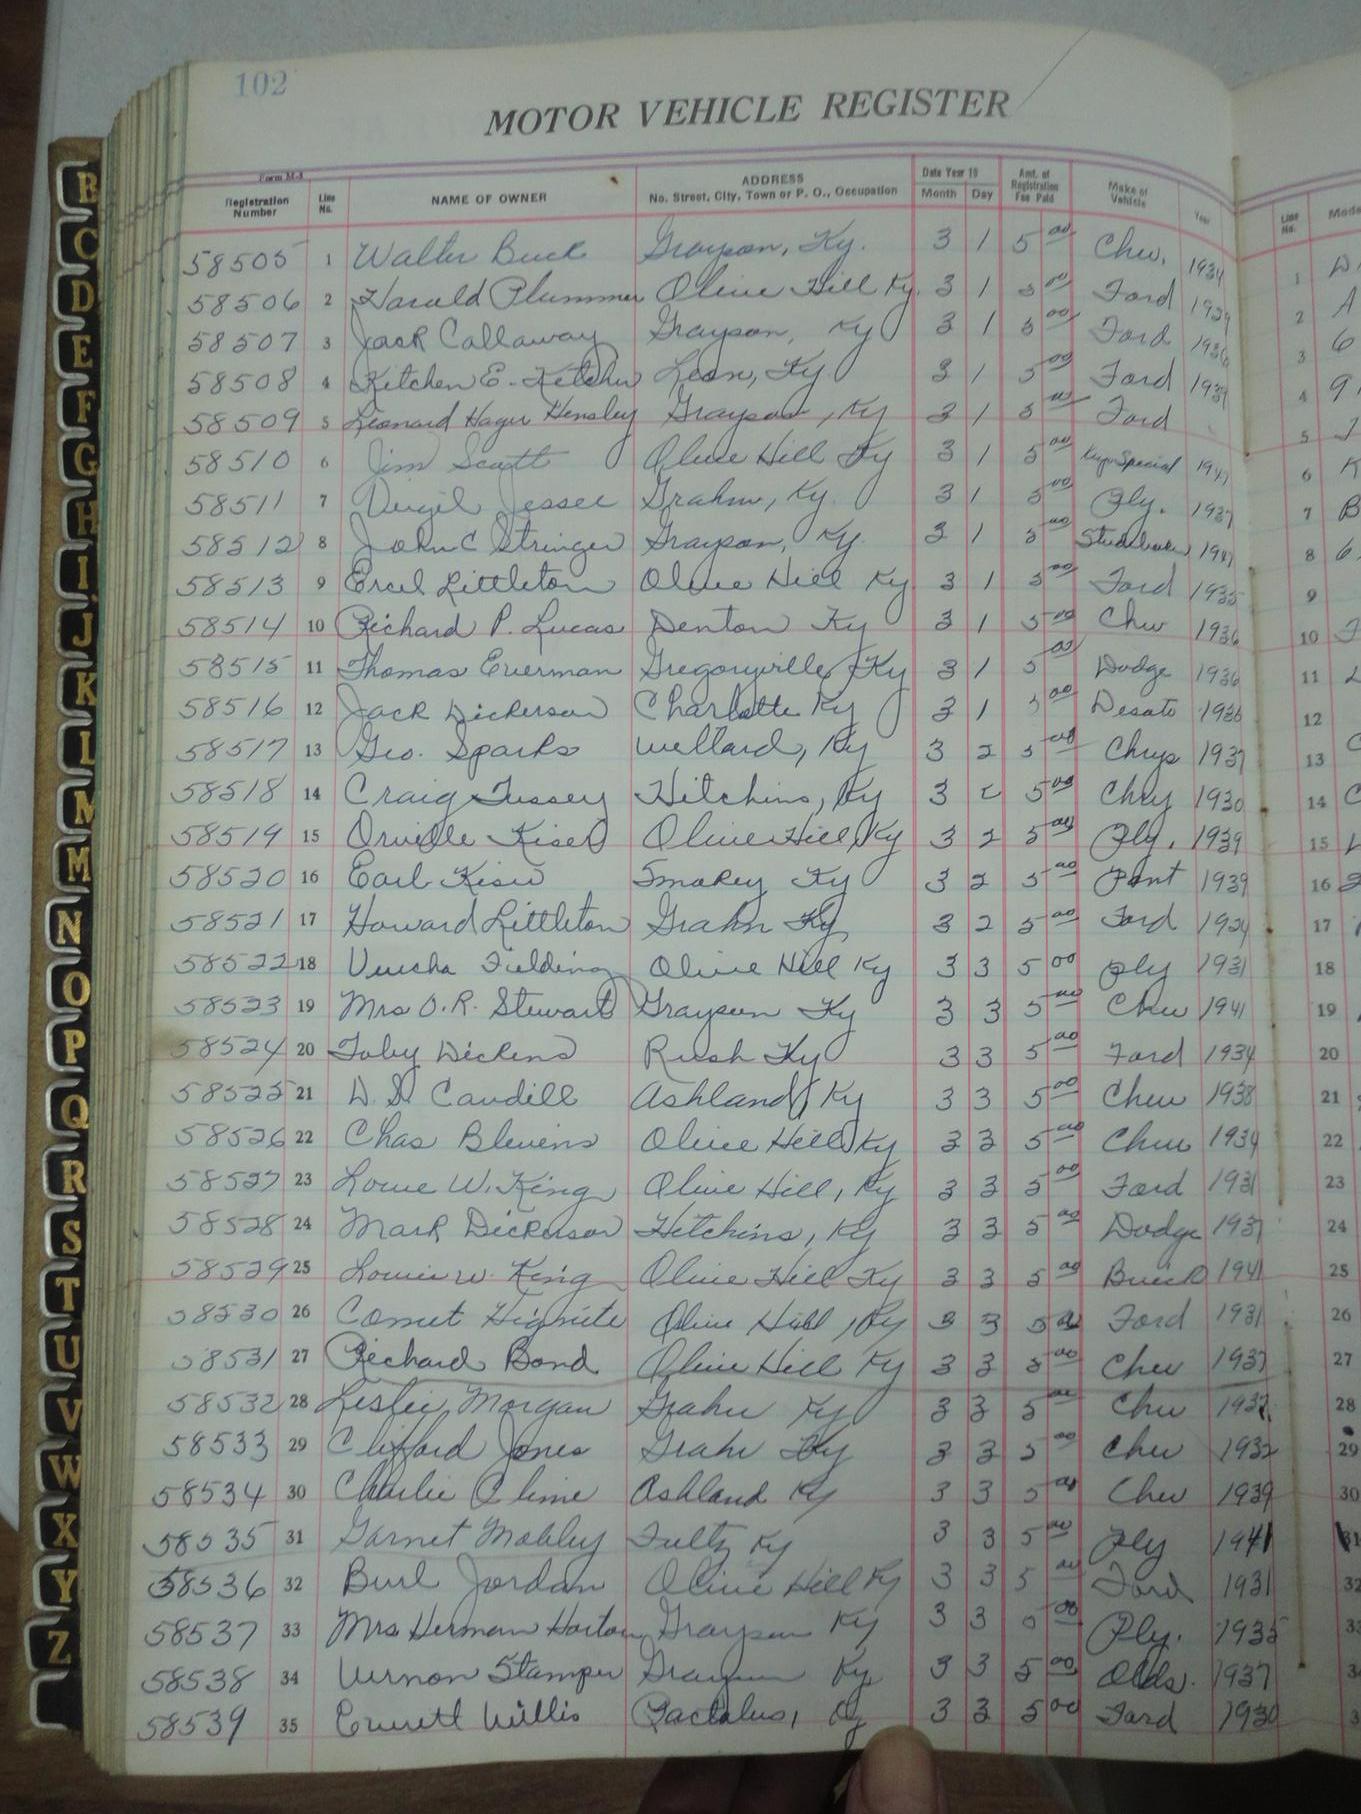 102
MOTOR VEHICLE REGISTER
Form M-4
Registration Number Line No. NAME OF OWNER ADDRESS No. Street, City, Town or P. O., Occupation Date Year 19 Month Day Amt. of Registration Fee Paid Make of Vehicle Year Line No.
58505 1 Walter Buck Grayson, Ky. 3 1 5 00 Chev. 1934 1
58506 2 Harold Plummer Olive Hill Ky. 3 1 5 00 Ford 1929 2 A
58507 3 Jack Callaway Grayson, Ky 3 1 5 00 Ford 1936 3 6
58508 4 Kitchen E. Leon, Ky 3 1 5 00 Ford 4 9
58509 5 Leonard Hager Hensley Grayson, Ky 3 1 5 00 Ford 5
58510 6 Jim Scott Olive Hill Ky 3 1 5 00 Special 6 K
58511 7 Virgil Jessee Grahn, Ky. 3 1 5 00 Ply. 1937 7 B
58512 8 John C Stringer Grayson, Ky. 3 1 5 00 Studebaker 8 6
58513 9 Ercel Littleton Olive Hill Ky. 3 1 5 00 Ford 1935 9
58514 10 Richard P. Lucas Denton Ky 3 1 5 00 Chev 1936 10
58515 11 Thomas Everman Gregoryville, Ky 3 1 5 00 Dodge 1936 11
58516 12 Jack Dickerson Charlotte Ky 3 1 5 00 Desoto 1936 12
58517 13 Geo. Sparks Willard, Ky 3 2 5 00 Chrys 1937 13
58518 14 Craig Tussey Hitchins, Ky 3 2 5 00 1930 14
58519 15 Orville Kiser Olive Hill, Ky 3 2 5 00 Ply. 1939 15
58520 16 Earl Kiser Smokey Ky 3 2 5 00 Pont 1939 16
58521 17 Howard Littleton Grahn Ky 3 2 5 00 Ford 1929 17
58522 18 Fielding Olive Hill Ky 3 3 5 00 Ply 1931 18
58523 19 Mrs O.R. Stewart Grayson Ky 3 3 5 00 Chev 1941 19
58524 20 Toby Dickens Rush Ky 3 3 5 00 Ford 1934 20
58525 21 Caudill Ashland, Ky 3 3 5 00 Chev 1938 21
58526 22 Chas Blevins Olive Hill, Ky 3 3 5 00 Chev 1934 22
58527 23 Louie W. King Olive Hill, Ky 3 3 5 00 Ford 1931 23
58528 24 Mark Dickerson Hitchins, Ky 3 3 5 00 Dodge 1937 24
58529 25 Louie W. King Olive Hill Ky 3 3 5 00 Buick 1941 25
58530 26 Comet Hignite Olive Hill, Ky 3 3 5 00 Ford 1931 26
58531 27 Richard Bond Olive Hill Ky 3 3 5 00 Chev 1937 27
58532 28 Leslie Morgan Grahn Ky 3 3 5 00 Chev 28
58533 29 Clifford Jones Grahn Ky 3 3 5 00 Chev 1932 29
58534 30 Charlie Cline Ashland Ky 3 3 5 00 Chev 1939 30
58535 31 Garnet Mobley Fultz Ky 3 3 5 00 Ply 1941 31
58536 32 Burl Jordan Olive Hill Ky 3 3 5 00 Ford 1931 32
58537 33 Mrs Herman Horton Grayson Ky 3 3 5 00 Ply. 1935 33
58538 34 Vernon Stamper Grayson Ky 3 3 5 00 Olds. 1937
58539 35 Everett Willis Pactolus, Ky 3 3 5 00 Ford 1930
B
C
D
E
F
G
H
I
J
K
L
M
M
N
O
P
Q
R
S
T
U
V
W
X
Y
Z